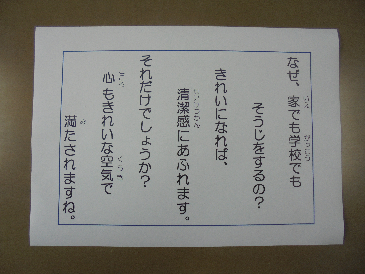 なぜ、家でも学校でも
そうじをするの？
きれいになれば、
清潔感にあふれます。
それだけでしょうか？
心もきれいな空気で
満たされますね。